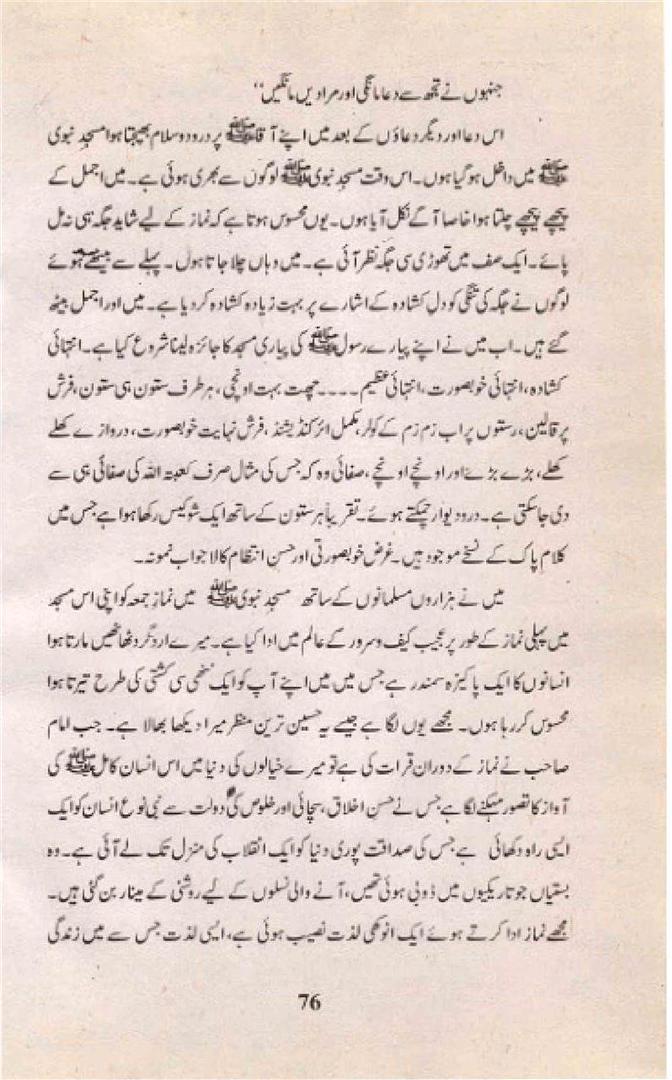 جنہوں نے تجھ سے دعا مانگی اور مرادیں مانگیں‘‘
اس دعا اور دیگر دعاؤں کے بعد میں اپنے آقا ﷺ پر درود و سلام بھیجتا ہوا مسجد نبوی
ﷺ میں داخل ہو گیا ہوں۔ اس وقت مسجد نبوی ﷺ لوگوں سے بھری ہوئی ہے۔ میں اجمل کے
پیچھے پیچھے چلتا ہوا خاصا آگے نکل آیا ہوں۔ یوں محسوس ہوتا ہے کہ نماز کے لیے شاید جگہ ہی نہ مل
پائے۔ ایک صف میں تھوڑی سی جگہ نظر آئی ہے۔ میں وہاں چلا جاتا ہوں۔ پہلے سے بیٹھے ہوئے
لوگوں نے جگہ کی تنگی کو دل کشادہ کے اشارے پر بہت زیادہ کشادہ کر دیا ہے۔ میں اور اجمل بیٹھ
گئے ہیں۔ اب میں نے اپنے پیارے رسول ﷺ کی پیاری مسجد کا جائزہ لینا شروع کیا ہے۔ انتہائی
کشادہ، انتہائی خوبصورت، انتہائی عظیم ۔۔۔۔ چھت بہت اونچی، ہر طرف ستون ہی ستون، فرش
پر قالین، رستوں پر اب زم زم کے کولر، مکمل ائرکنڈیشنڈ، فرش نہایت خوبصورت، دروازے کھلے
کھلے، بڑے بڑے اور اونچے اونچے، صفائی وہ کہ جس کی مثال صرف کعبتہ اللہ کی صفائی ہی سے
دی جا سکتی ہے۔ در و دیوار چمکتے ہوئے۔ تقریباً ہر ستون کے ساتھ ایک شوکیس رکھا ہوا ہے جس میں
کلام پاک کے نسخے موجود ہیں۔ غرض خوبصورتی اور حسن انتظام کا لاجواب نمونہ۔
میں نے ہزاروں مسلمانوں کے ساتھ مسجد نبوی ﷺ میں نماز جمعہ کو اپنی اس مسجد
میں پہلی نماز کے طور پر عجیب کیف و سرور کے عالم میں ادا کیا ہے۔ میرے ارد گرد ٹھاٹھیں مارتا ہوا
انسانوں کا ایک پاکیزہ سمندر ہے جس میں میں اپنے آپ کو ایک ننھی سی کشتی کی طرح تیرتا ہوا
محسوس کر رہا ہوں۔ مجھے یوں لگا ہے جیسے یہ حسین ترین منظر میرا دیکھا بھالا ہے۔ جب امام
صاحب نے نماز کے دوران قرات کی ہے تو میرے خیالوں کی دنیا میں اس انسان کامل ﷺ کی
آواز کا تصور مہکنے لگا ہے جس نے حسن اخلاق، سچائی اور خلوص کی دولت سے بنی نوع انسان کو ایک
ایسی راہ دکھائی ہے جس کی صداقت پوری دنیا کو ایک انقلاب کی منزل تک لے آئی ہے۔ وہ
بستیاں جو تاریکیوں میں ڈوبی ہوئی تھیں، آنے والی نسلوں کے لیے روشنی کے مینار بن گئی ہیں۔
مجھے نماز ادا کرتے ہوئے ایک انوکھی لذت نصیب ہوئی ہے، ایسی لذت جس سے میں زندگی
76